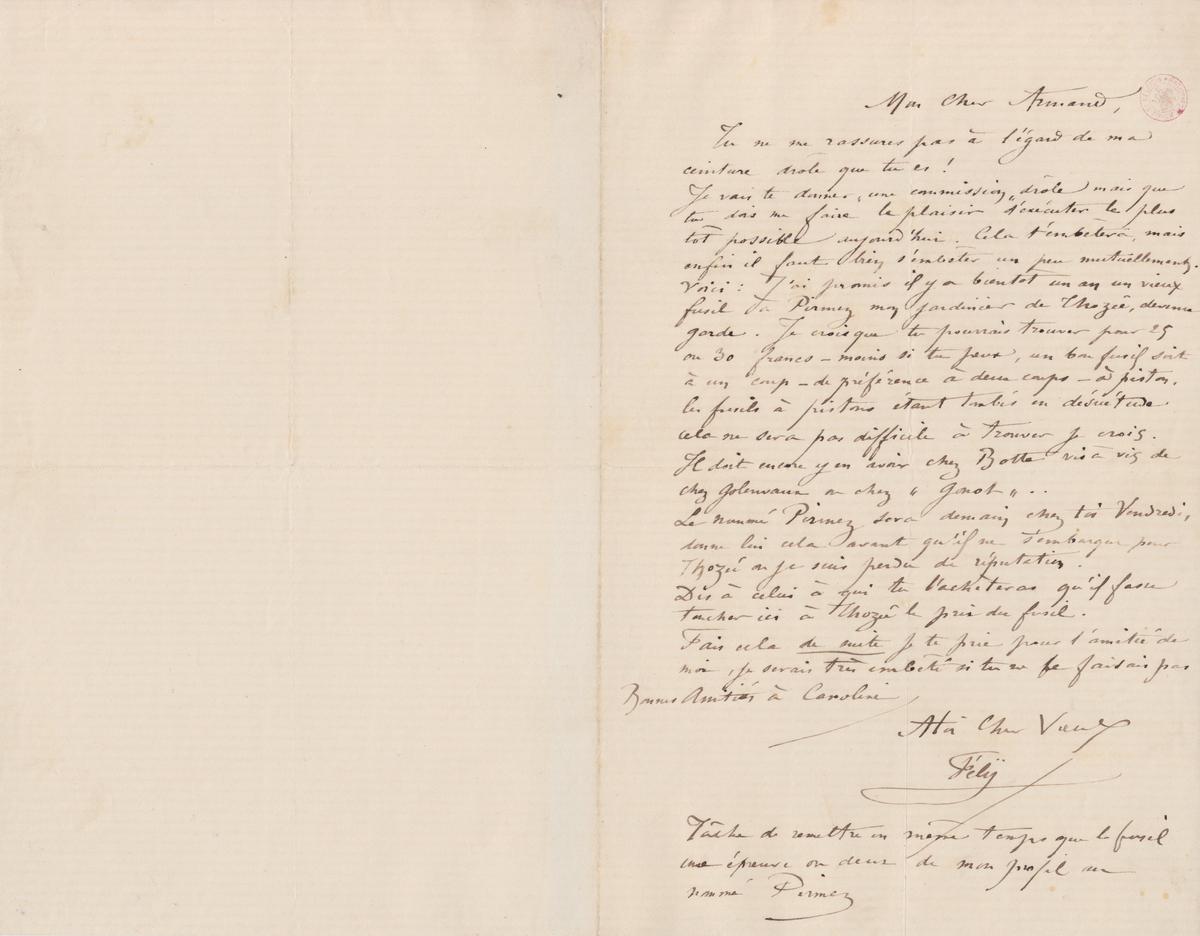 Mon Cher Armand,
Tu ne me rassures pas à l'égard de ma
ceinture drôle que tu es !
Je vais te donner, une commission „drôle" mais que
tu dois me faire le plaisir d'exécuter le plus
tôt possible aujourd'hui. Cela t'embêtera, mais
enfin il faut bien s'embêter un peu mutuellement.
Voici : J'ai promis il y a bientôt un an un vieux
fusil à Pirmez mon jardinier de Thozée, devenu
garde. Je crois que tu pourrais trouver pour 25
ou 30 francs – moins si tu peux, un bon fusil soit
à un coup – de préférence à deux coups – à piston.
les fusils à pistons étant tombés en désuétude
cela ne sera pas difficile à trouver je crois.
Il doit encore y en avoir chez Botte vis à vis de
chez Golenvaux ou chez „ Gonot „ . .
Le nommé Pirmez sera demain chez toi Vendredi,
donne lui cela avant qu'il ne s'embarque pour
Thozée ou je suis perdu de réputation.
Dis à celui à qui tu l'achèteras qu'il fasse
toucher ici à Thozée le prix du fusil.
Fais cela de suite je te prie pour l'amitié de
moi, je serais très embêté si tu ne le faisais pas
Bonnes Amitiés à Caroline
A toi Cher Vieux
Fély
Tâche de remettre en même temps que le fusil
une épreuve ou deux de mon profil au
nommé Pirmez